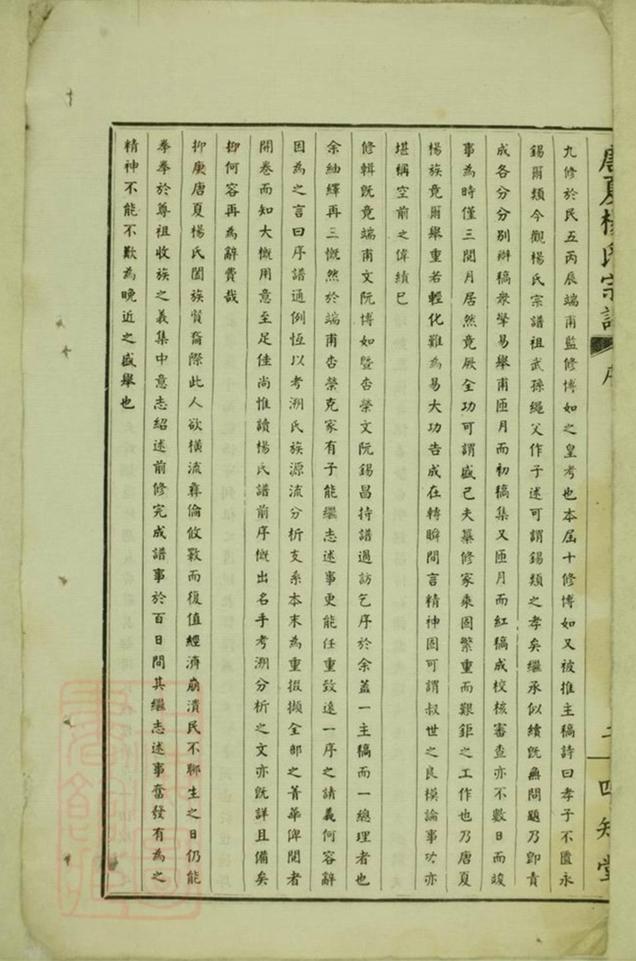 唐夏楊氏宗譜 序 四知堂
九修於民五丙辰端甫監修博如之皇考也本屆十修博如又被推主稿詩曰孝子不匱永
錫爾類今觀楊氏宗譜祖武孫繩父作子述可謂錫類之孝矣繼承似續既無問題乃卽責
成各分分別辦稿衆擎易舉甫匝月而初稿集又匝月而紅稿成校核審查亦不數日而竣
事為時僅三閱月居然竟厥全功可謂盛已夫纂修家乘固繁重而艱鉅之工作也乃唐夏
楊族竟爾舉重若輕化難為易大功告成在轉瞬間言精神固可謂叔世之良模論事功亦
堪稱空前之偉績已
修輯旣竟端甫文阮博如暨杏榮文阮錫昌持譜過訪乞序於余蓋一主稿而一總理者也
余紬繹再三慨然於端甫杏榮克家有子能繼志述事更能任重致遠一序之請義何容辭
因為之言曰序譜通例恆以考溯氏族源流分析支系本末為重掇擷全部之菁華俾閱者
開卷而知大概用意至足佳尚惟讀楊氏譜前序概出名手考溯分析之文亦旣詳且備矣
抑何容再為辭費哉
抑庚唐夏楊氏闔族賢裔際此人欲橫流彝倫攸斁而復值經濟崩潰民不聊生之日仍能
拳拳於尊祖收族之義集中意志紹述前修完成譜事於百日間其繼志述事奮發有為之
精神不能不歎為晚近之盛舉也